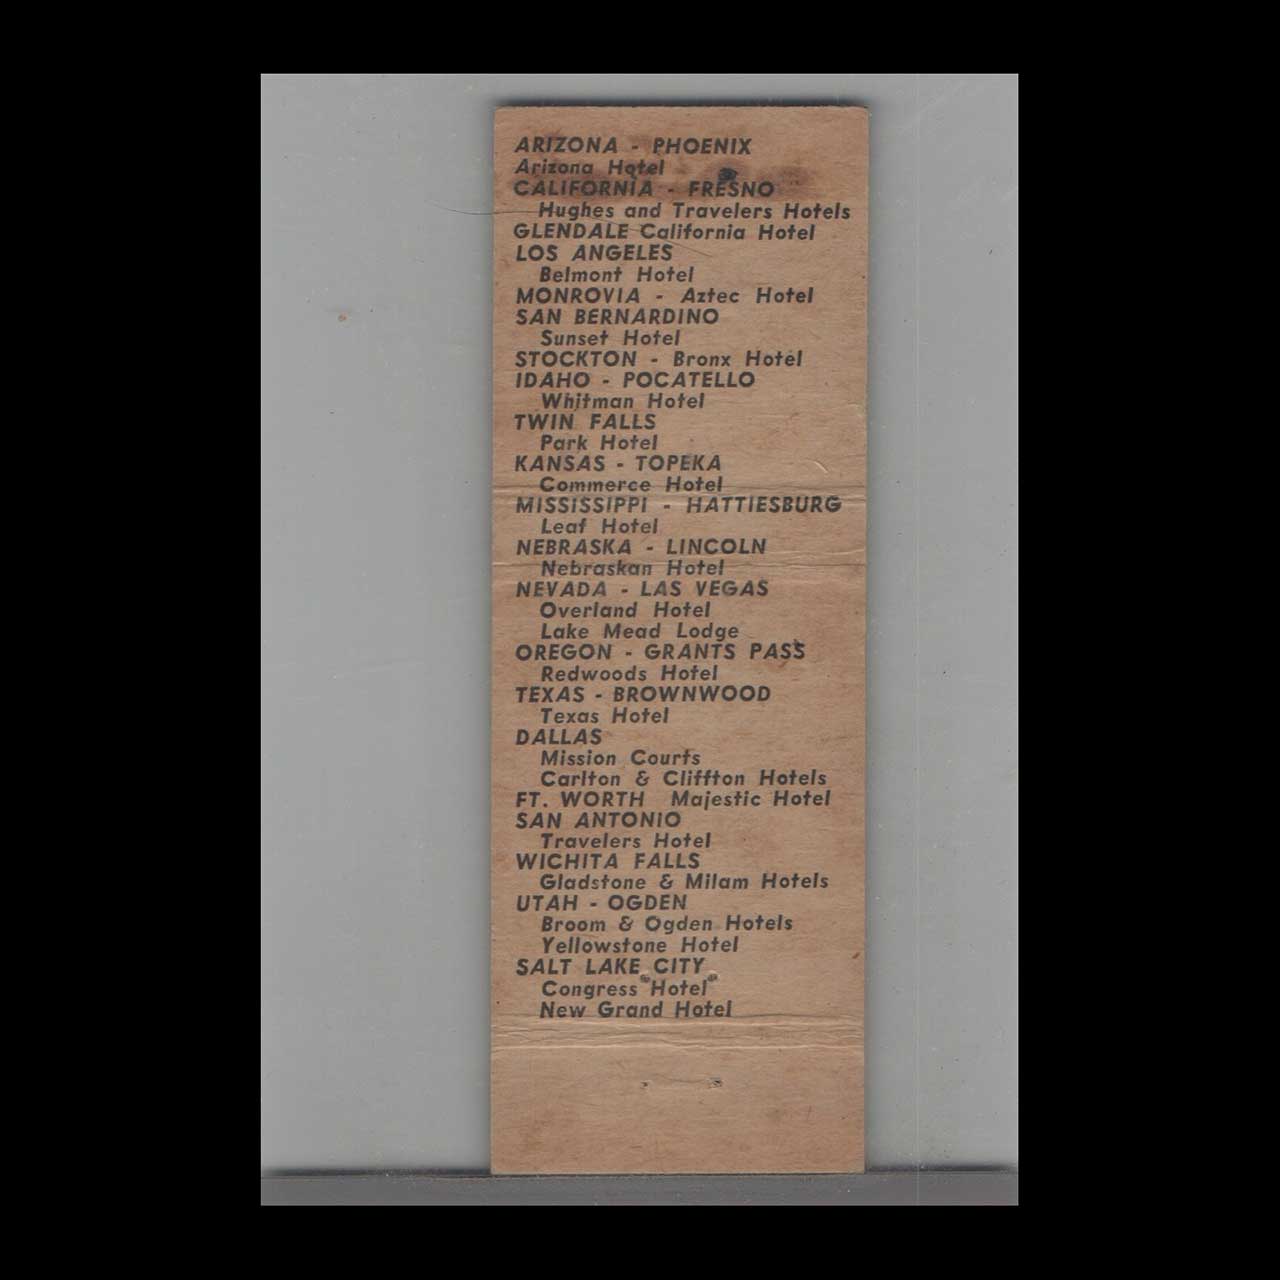 ARIZONA - PHOENIX
Arizona Hotel
CALIFORNIA - FRESNO
Hughes and Travelers Hotels
GLENDALE California Hotel
LOS ANGELES
Belmont Hotel
MONROVIA - Aztec Hotel
SAN BERNARDINO
Sunset Hotel
STOCKTON - Bronx Hotel
IDAHO - POCATELLO
Whitman Hotel
TWIN FALLS
Park Hotel
KANSAS - TOPEKA
Commerce Hotel
MISSISSIPPI - HATTIESBURG
Leaf Hotel
NEBRASKA - LINCOLN
Nebraskan Hotel
NEVADA - LAS VEGAS
Overland Hotel
Lake Mead Lodge
OREGON - GRANTS PASS
Redwoods Hotel
TEXAS - BROWNWOOD
Texas Hotel
DALLAS
Mission Courts
Carlton & Cliffton Hotels
FT. WORTH Majestic Hotel
SAN ANTONIO
Travelers Hotel
WICHITA FALLS
Gladstone & Milam Hotels
UTAH - OGDEN
Broom & Ogden Hotels
Yellowstone Hotel
SALT LAKE CITY
Congress Hotel
New Grand Hotel